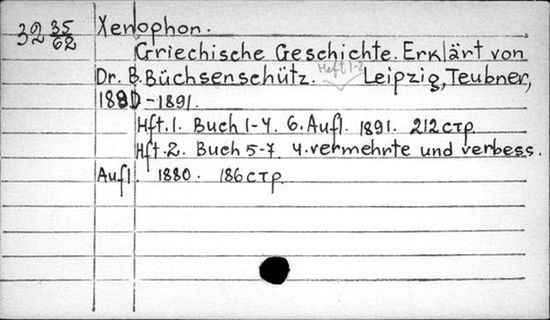 32 35/62
Xenophon.
Griechische Geschichte. Erklärt von
Dr. B. Büchsenschütz. Heft 1-2 Leipzig, Teubner,
1880-1891.
Hft. 1. Buch 1-4. 6. Aufl. 1891. 212 стр.
Hft. 2. Buch 5-7 4. vermehrte und verbess.
Aufl. 1880. 186 стр.